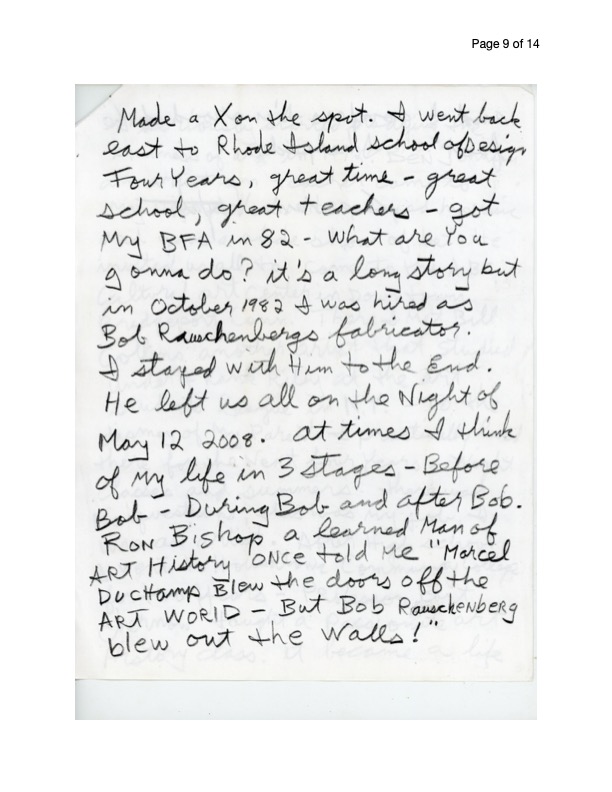 Page 9 of 14
Made a X on the spot. I went back
east to Rhode Island school of Design
Four Years, great time - great
school, great teachers - got
My BFA in 82 - What are You
gonna do? it's a long story but
in October 1982 I was hired as
Bob Rauschenbergs fabricator.
I stayed with Him to the End.
He left us all on the Night of
May 12 2008. at times I think
of my life in 3 stages - Before
Bob - During Bob and after Bob.
RON Bishop a learned Man of
ART History ONCE told Me "Marcel
DUCHamp Blew the doors off the
ART WORLD - But Bob Rauschenberg
blew out the Walls!"